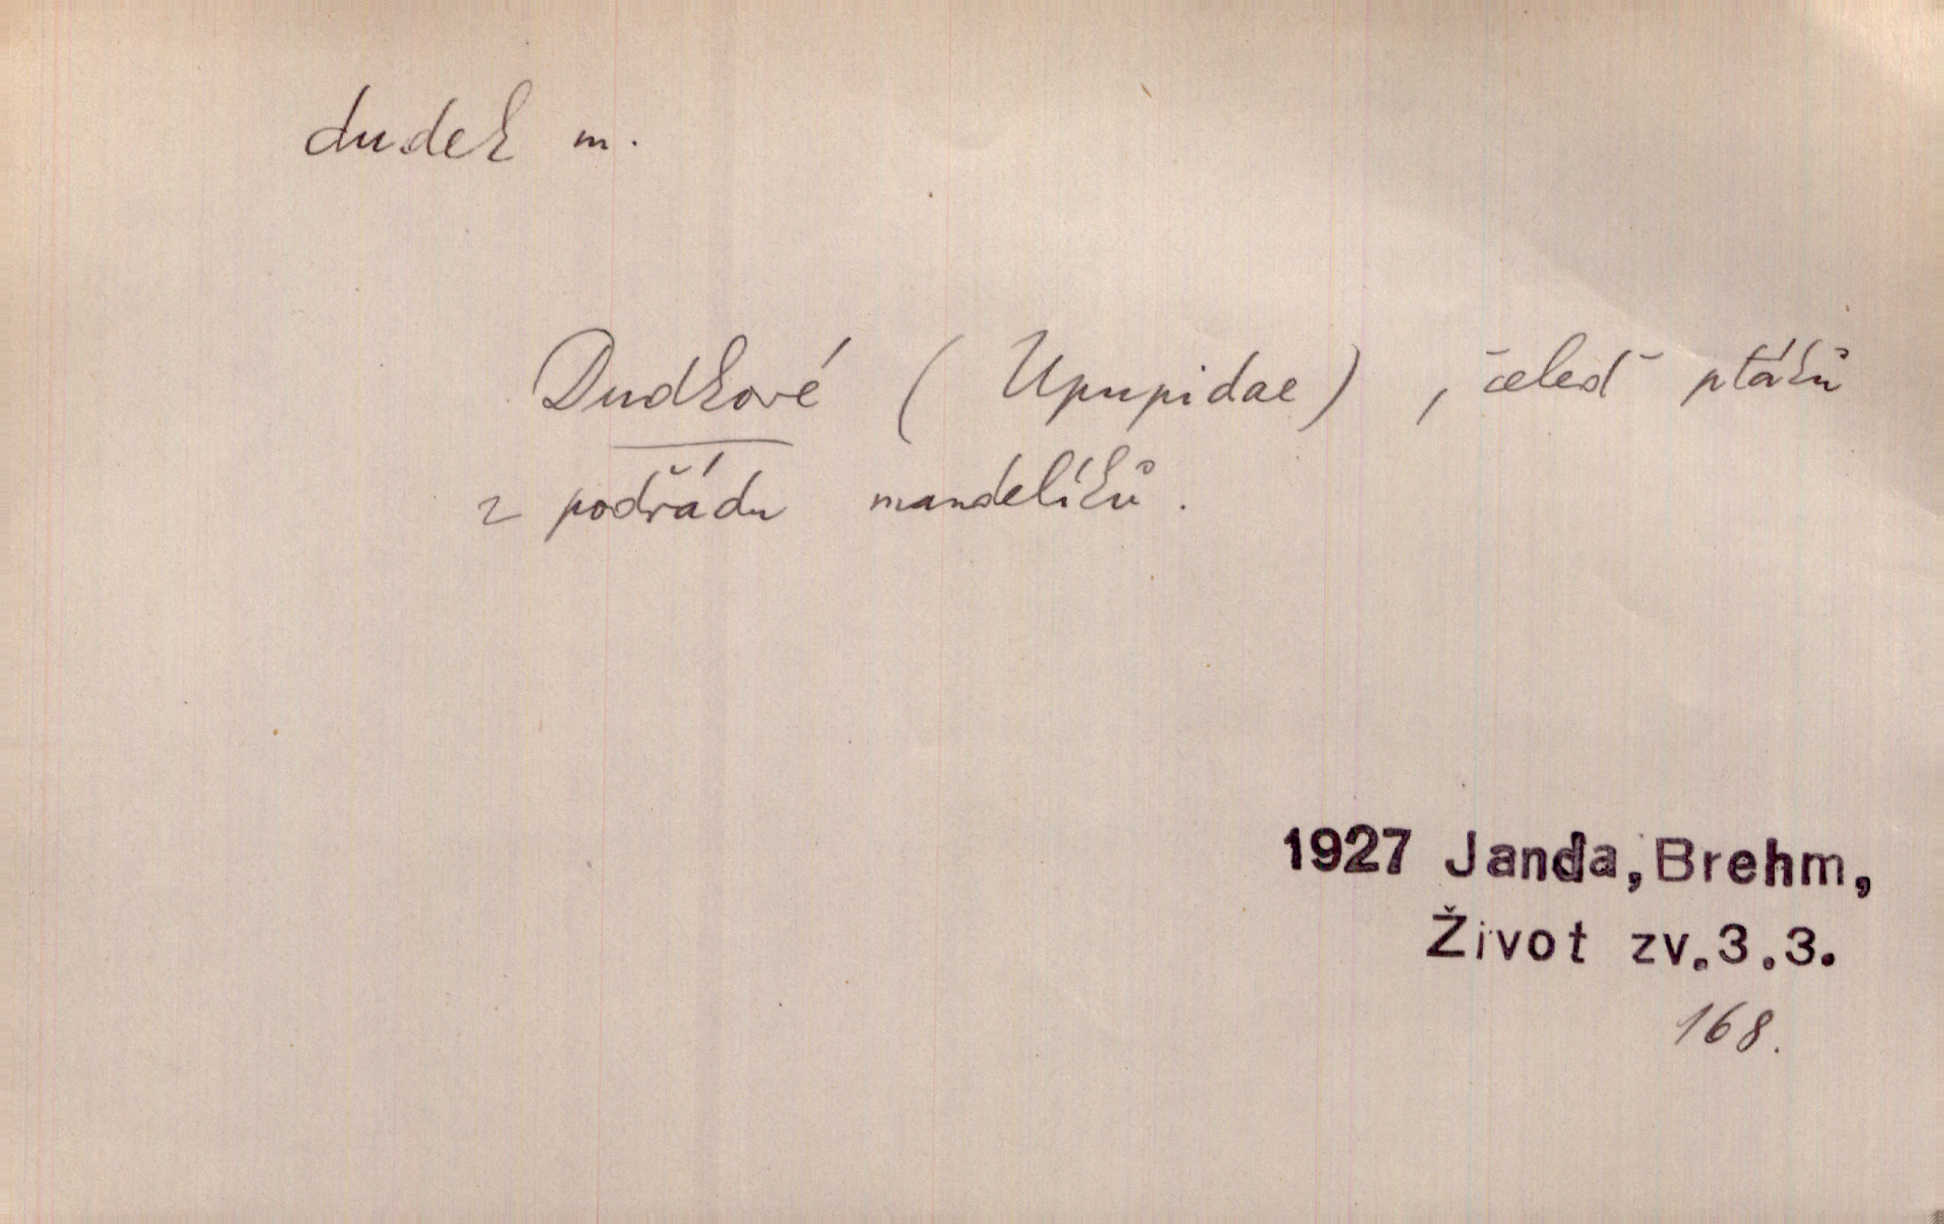 dudek m.
Dudkové (Upupidae), čeleď ptáků
z podřádu mandelíků.
1927 Janda, Brehm,
Život zv.3.3.
168.